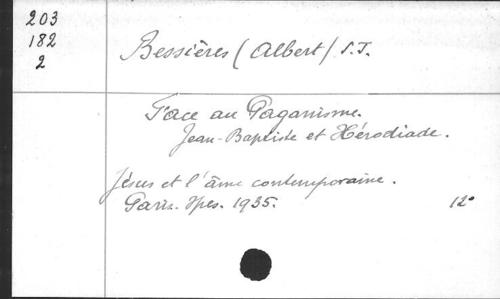 203
182
2
Bessières (Albert) S.J.
Face au Paganisme.
Jean-Baptiste et Hérodiade.
Jésus et l'âme contemporaine.
Paris. Spes. 1935. 12°